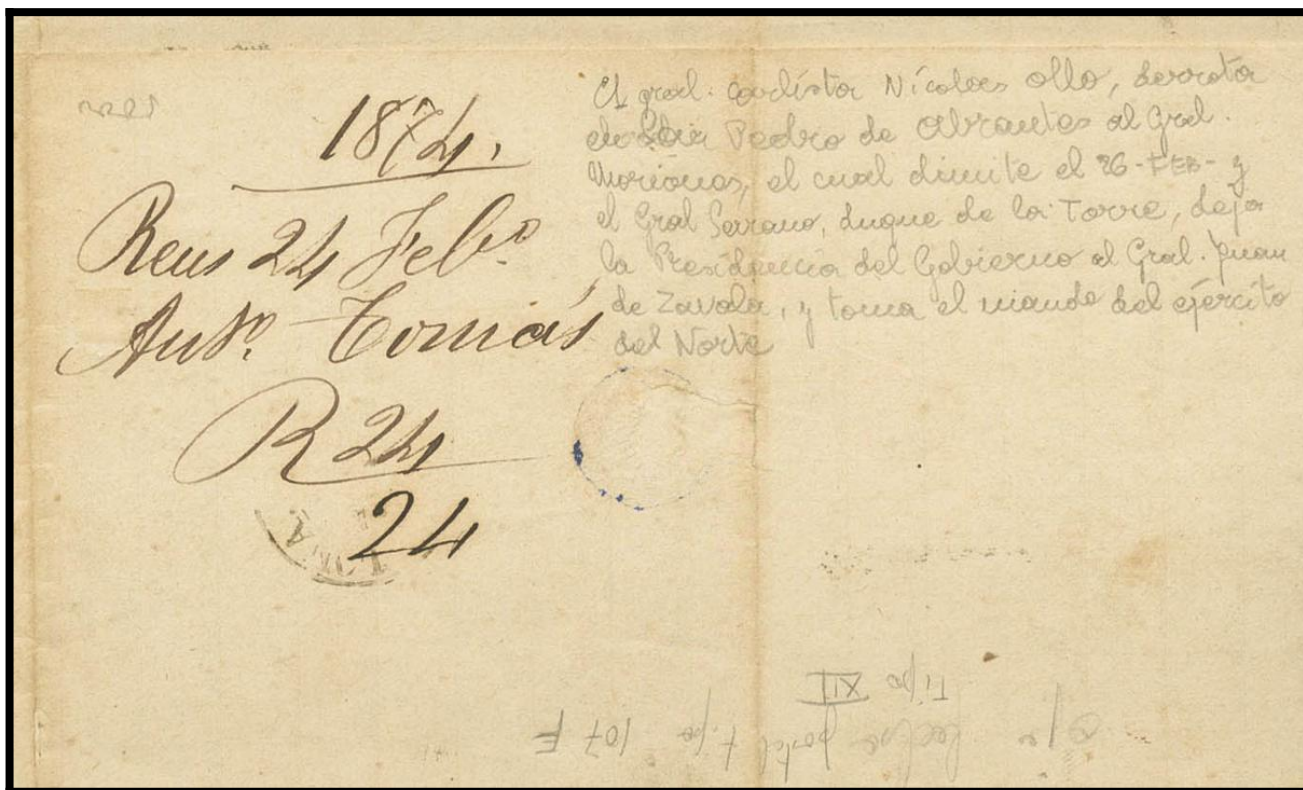 1874.
Reus 24 Feb.º
Ant.º Tomás
R 24
24
El gral. carlista Nicolas Ollo, derrota
en San Pedro de Abrantes al Gral.
Moriones, el cual dimite el 26-FEB- y
el Gral Serrano, duque de la Torre, deja
la Presidencia del Gobierno al Gral. Juan
de Zavala, y toma el mando del ejército
del Norte
tipo XII
tipo 107 F